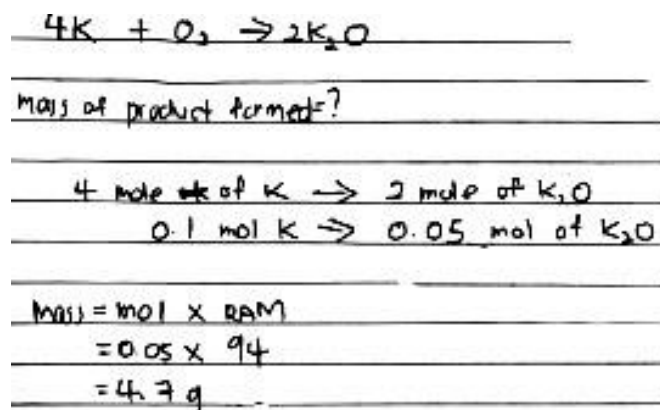 4K + O₂ → 2K₂O
mass of product formed=?
4 mole of K → 2 mole of K₂O
0.1 mol K → 0.05 mol of K₂O
mass = mol × RAM
= 0.05 × 94
= 4.7 g